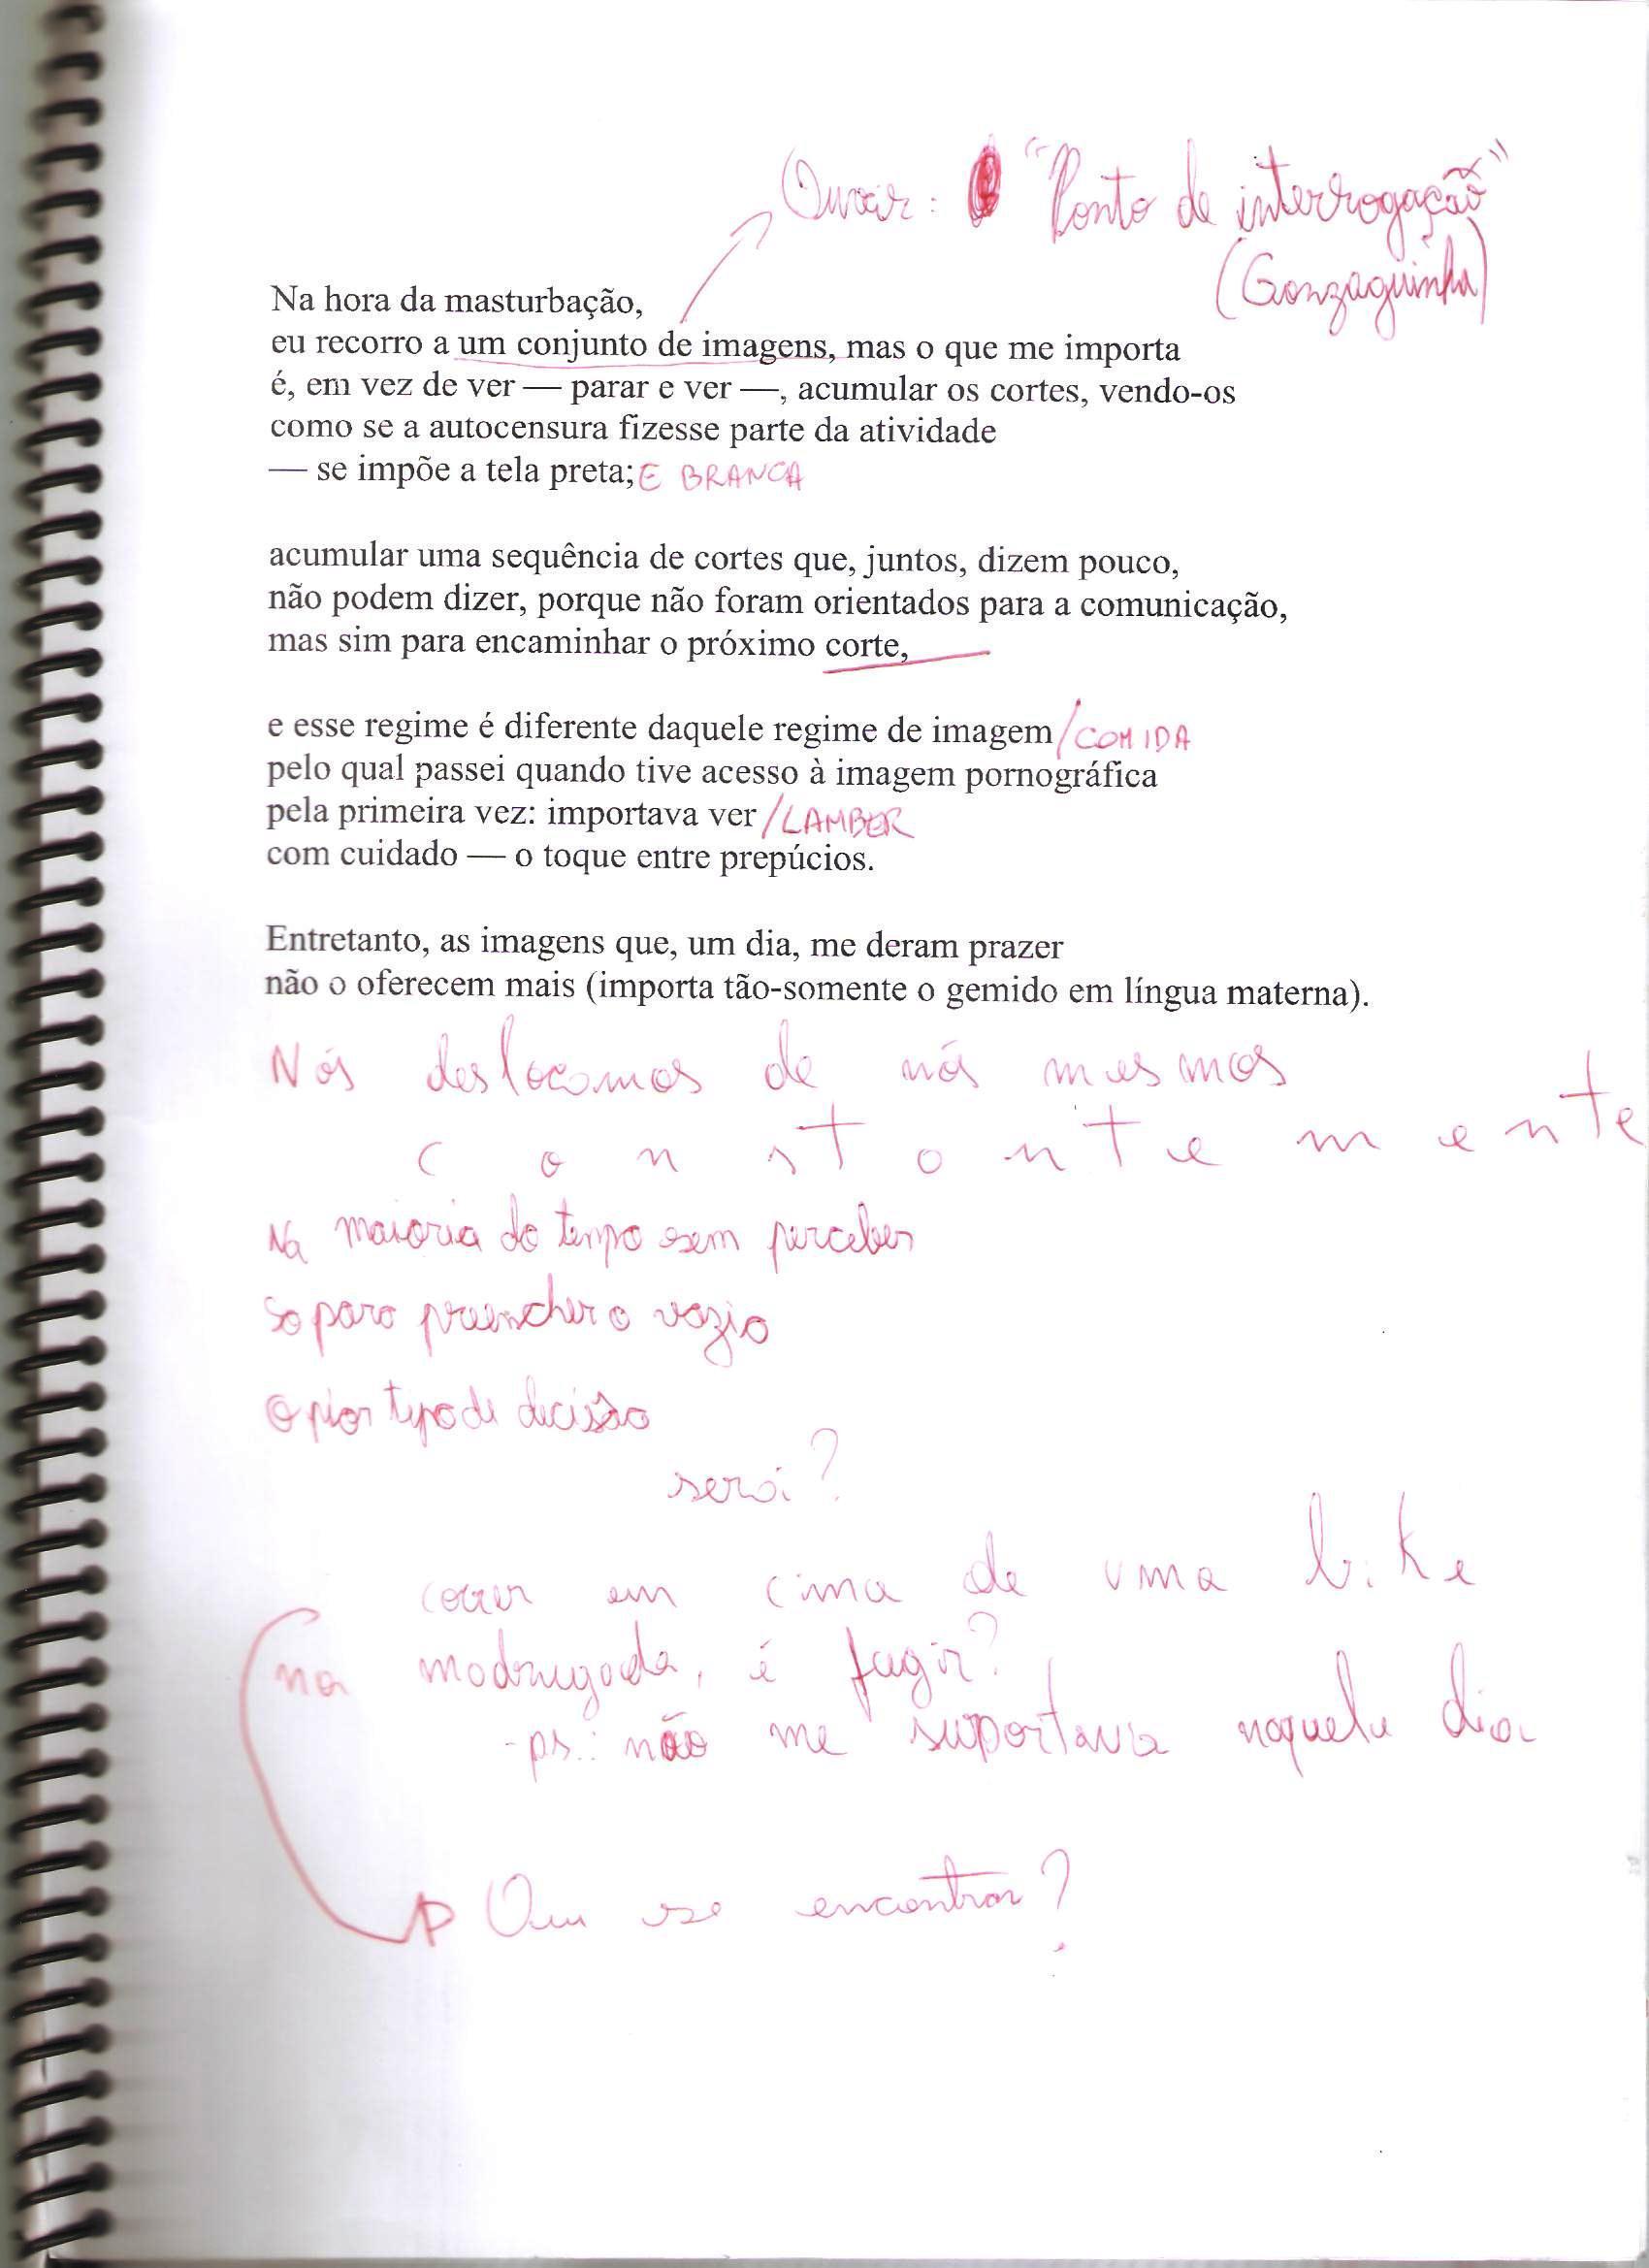 Ouvir: "Ponto de interrogação"
(Gonzaguinha)
Na hora da masturbação,
eu recorro a um conjunto de imagens, mas o que me importa
é, em vez de ver — parar e ver —, acumular os cortes, vendo-os
como se a autocensura fizesse parte da atividade
— se impõe a tela preta; E BRANCA
acumular uma sequência de cortes que, juntos, dizem pouco,
não podem dizer, porque não foram orientados para a comunicação,
mas sim para encaminhar o próximo corte,
e esse regime é diferente daquele regime de imagem /COMIDA
pelo qual passei quando tive acesso à imagem pornográfica
pela primeira vez: importava ver /LAMBER
com cuidado — o toque entre prepúcios.
Entretanto, as imagens que, um dia, me deram prazer
não o oferecem mais (importa tão-somente o gemido em língua materna).
Nós deslocamos de nós mesmos
c o n s t a n t e m e n t e
Na maioria do tempo sem perceber
So para preencher o vazio
O pior tipo de decisão
será?
correr em cima de uma bike
na madrugada, é fugir?
-ps.: não me suportava naquele dia
Ou se encontrar?